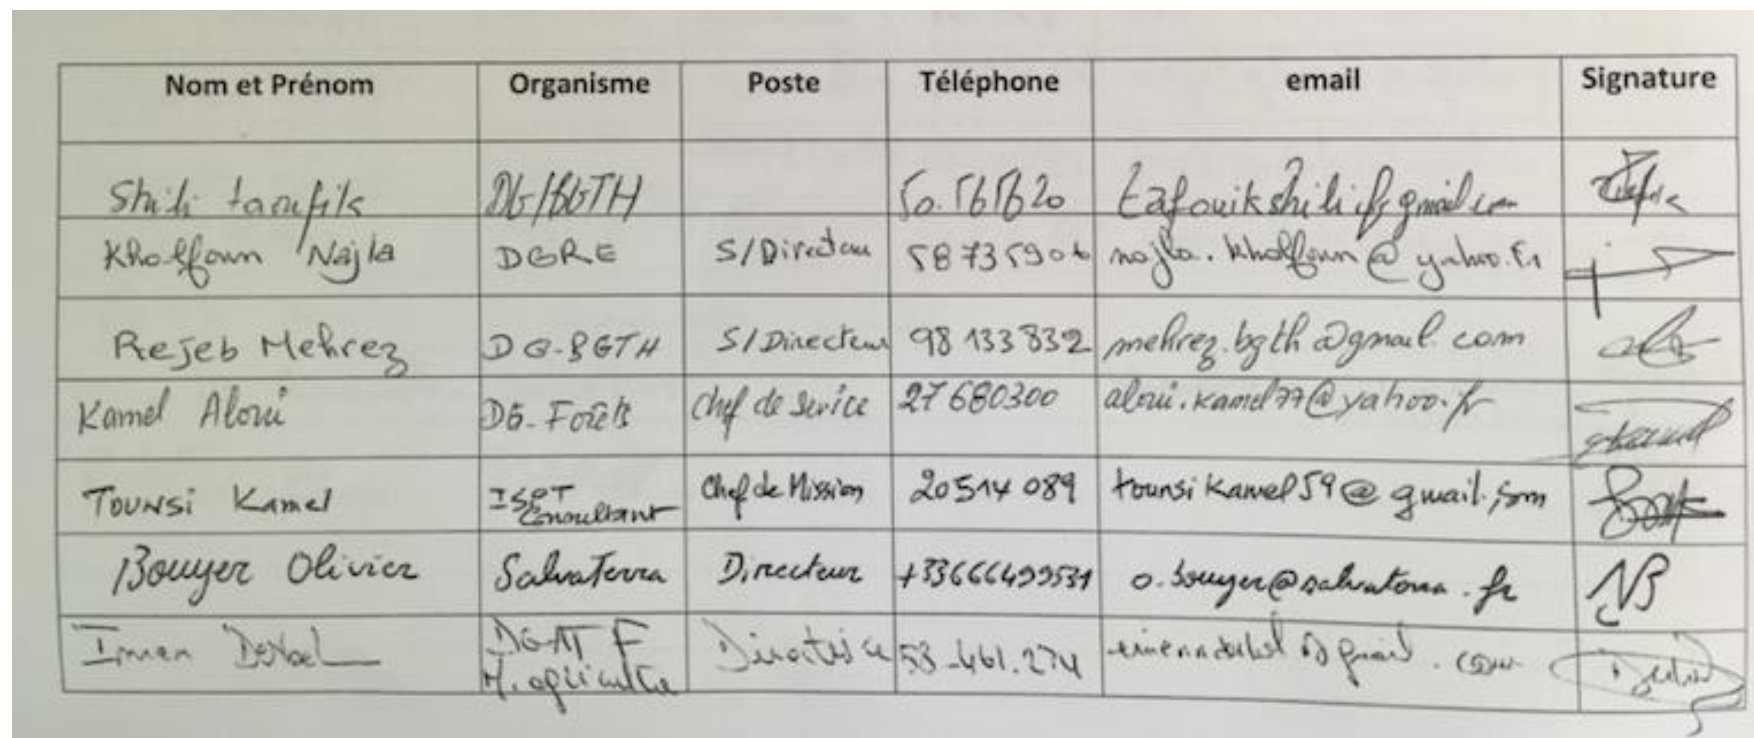 Nom et Prénom Organisme Poste Téléphone email Signature
Shili taoufik DG/BGTH
Kholfoun Najla DGRE S/Directeur 58735906 najla.kholfoun@yahoo.fr
Rejeb Mehrez DG-BGTH S/Directeur 98 133 832 mehrez.bgth@gmail.com
Kamel Aloui DG-Forêts chef de service 27680300 aloui.kamel77@yahoo.fr
TOUNSi Kamel ISPT Consultant Chef de Mission 20514089 tounsikamel59@gmail.com
Bouyer Olivier SalvaTerra Directeur +33666499531 o.bouyer@salvaterra.fr
Imen DGAT F M. agriculture Directrice 53-461.274